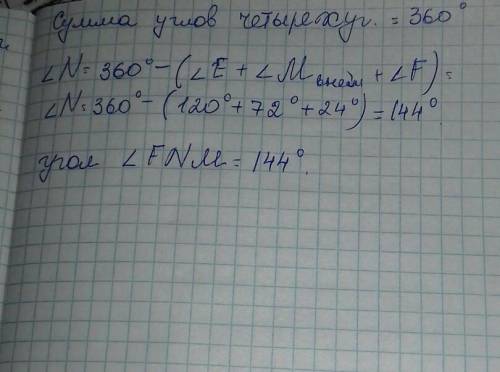 Сумма углов четырехуг. = 360°
∠N = 360° - (∠E + ∠M внеш + ∠F) =
∠N = 360° - (120° + 72° + 24°) = 144°.
угол ∠FNM = 144°.